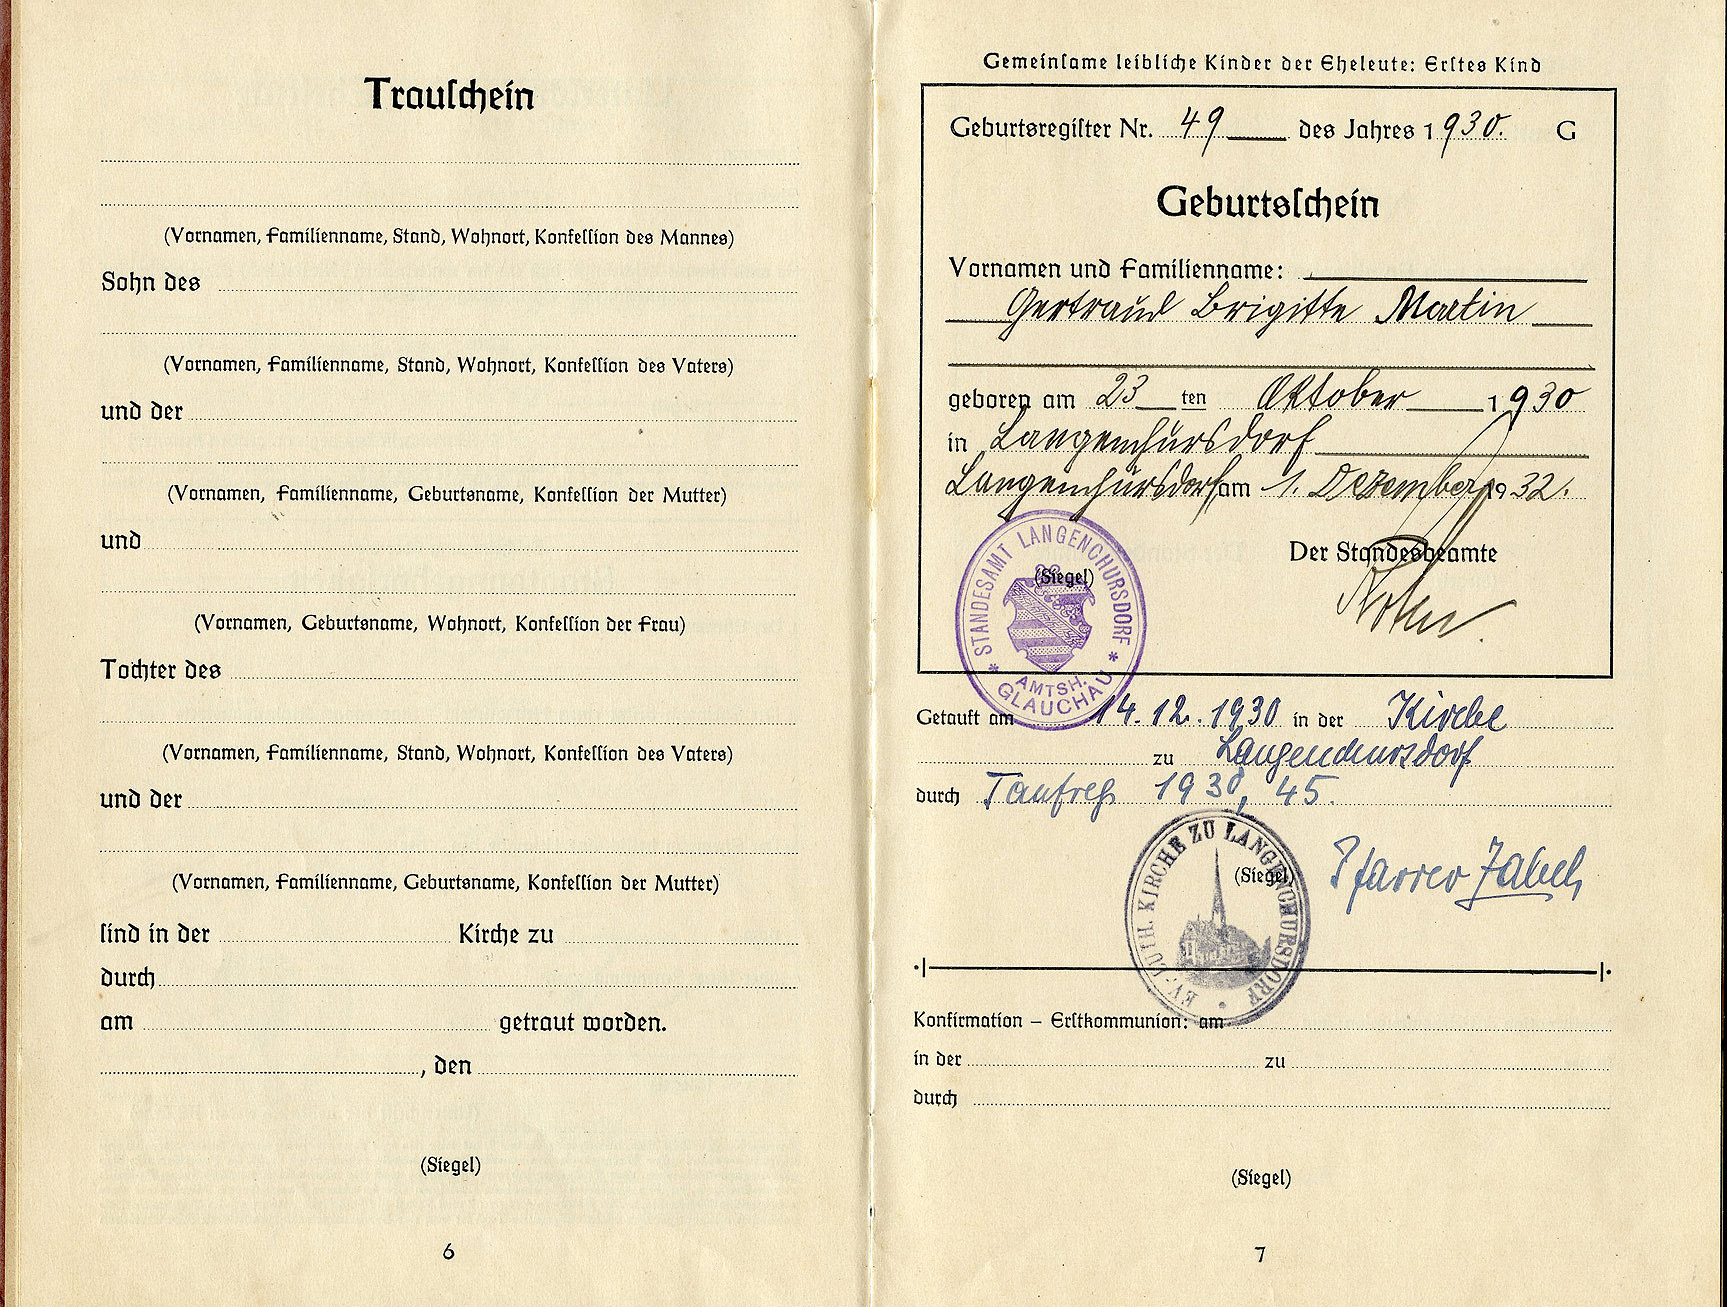 Trauschein
(Vornamen, Familienname, Stand, Wohnort, Konfession des Mannes)
Sohn des
(Vornamen, Familienname, Stand, Wohnort, Konfession des Vaters)
und der
(Vornamen, Familienname, Geburtsname, Konfession der Mutter)
und
(Vornamen, Geburtsname, Wohnort, Konfession der Frau)
Tochter des
(Vornamen, Familienname, Stand, Wohnort, Konfession des Vaters)
und der
(Vornamen, Familienname, Geburtsname, Konfession der Mutter)
sind in der Kirche zu
durch
am getraut worden.
, den
(Siegel)
6
Gemeinsame leibliche Kinder der Eheleute: Erstes Kind
Geburtsregister Nr. 49 des Jahres 1930. G
Geburtsschein
Vornamen und Familienname:
Gertraud Brigitte Martin
geboren am 23 ten Oktober 1930
in Langenchursdorf
Langenchursdorf am 1. Dezember 1932.
Der Standesbeamte
(Siegel)
STANDESAMT LANGENCHURSDORF
* AMTSH. *
GLAUCHAU
Getauft am 14.12.1930 in der Kirche
zu Langenchursdorf
durch Taufreg 1930, 45.
(Siegel) Pfarrer Zabel
EV. LUTH. KIRCHE ZU LANGENCHURSDORF
Konfirmation – Erstkommunion: am
in der zu
durch
(Siegel)
7